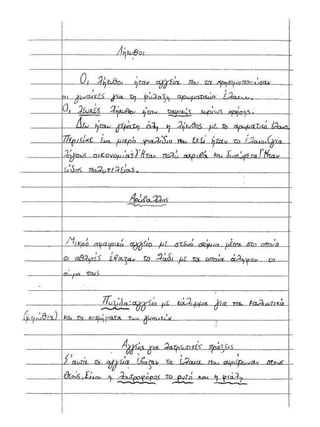 Λήκυθοι
Οι λήκυθοι ήταν αγγεία που τα χρησιμοποιούσαν
οι γυναίκες για τη φύλαξη αρωματικών ελαίων.
Οι λευκές λήκυθοι ήταν ταφικής κυρίως χρήσης.
Δεν ήταν γεμάτη όλη η λήκυθος με το αρωματικό έλαιο.
Περιείχε ένα μικρό φιαλίδιο που εκεί ήταν το έλαιο (για
λόγους οικονομίας) Ήταν πολύ ακριβά και δυσεύρετα Ήταν
είδος πολυτελείας.
Αρύβαλλος
Μικρό σφαιρικό αγγείο με στενό στόμιο μέσα στο οποίο
οι αθλητές έβαζαν το λάδι με το οποίο άλειφαν το
σώμα τους
Πυξίδα: αγγείο με κάλυμμα για τα καλλυντικά
και τα κοσμήματα των γυναικών
Αγγεία για λατρευτικές πράξεις
Σ'αυτά τα αγγεία έβαζαν τα έλαια που αφιέρωναν στους
Θεούς. Είναι η πλημοχόη το ρυτό και η φιάλη